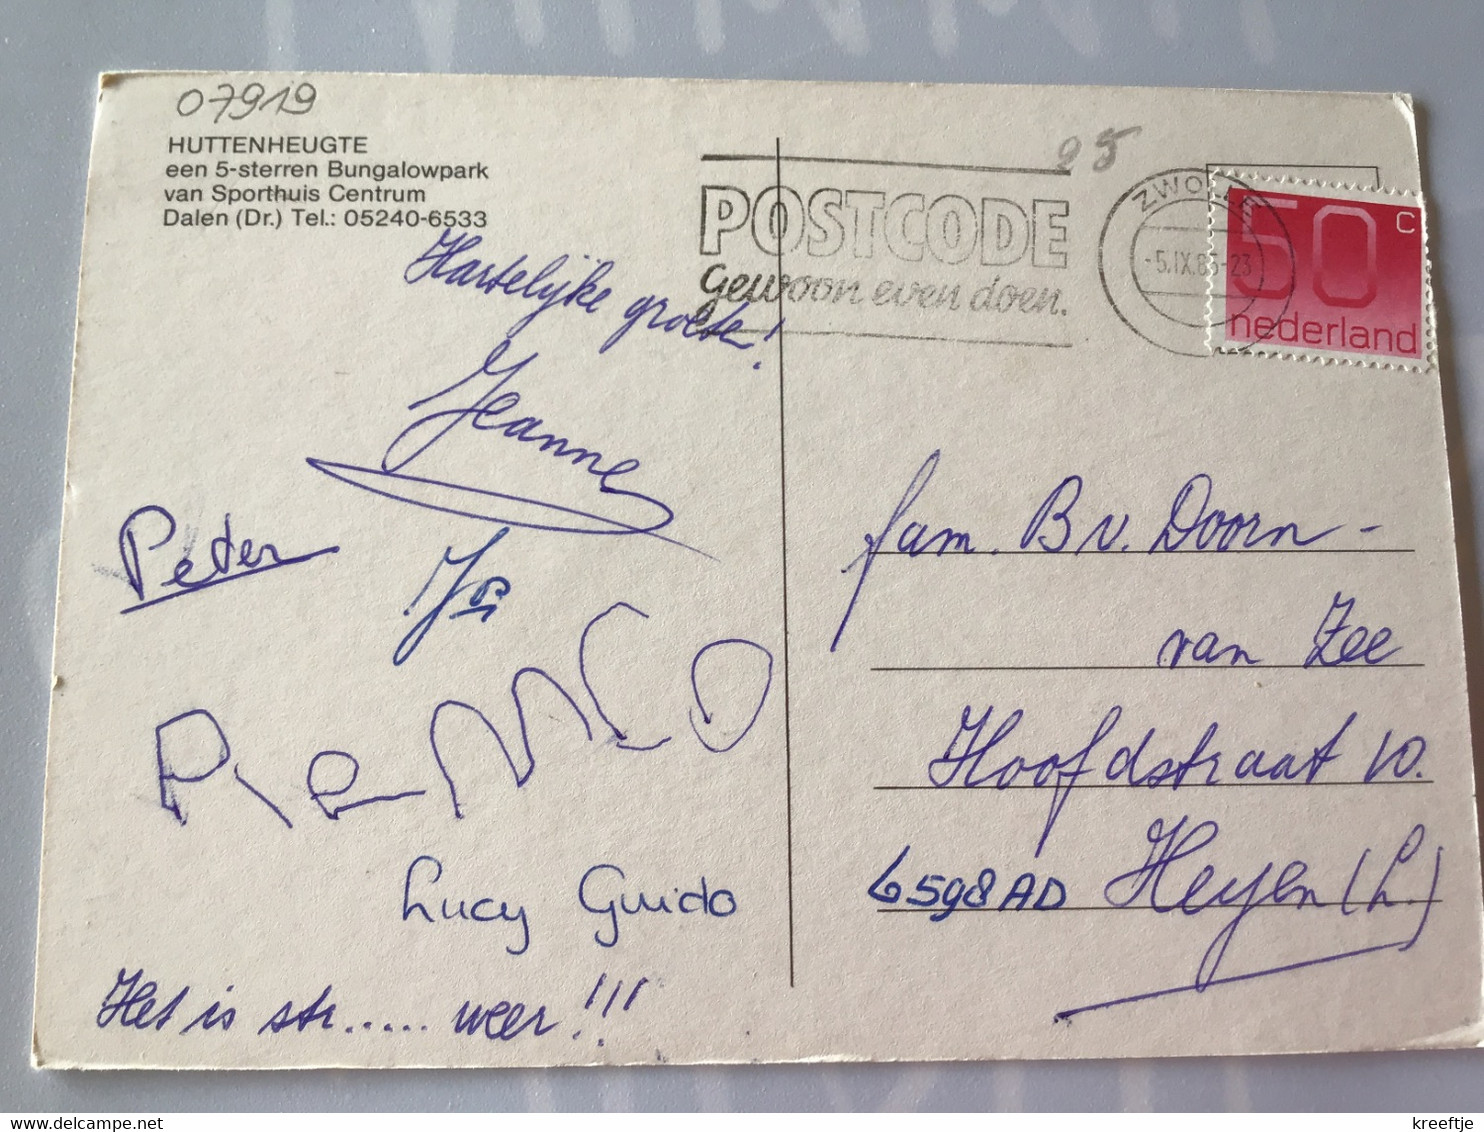 07919
HUTTENHEUGTE
een 5-sterren Bungalowpark
van Sporthuis Centrum
Dalen (Dr.) Tel.: 05240-6533
25
POSTCODE
gewoon even doen.
ZWOLLE
-5.IX.85-23
50 c
nederland
Hartelijke groete!
Jeanne
Peter
REMCO
Lucy Guido
Het is str..... weer!!!
fam. B v. Doorn -
van Zee
Hoofdstraat 10.
6598AD Heyen (L.)
kreeftje